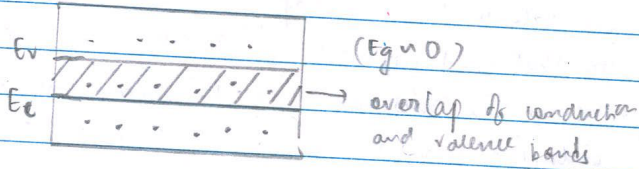 Ev
(Eg ~ 0)
Ec
→ overlap of conduction
and valence bands